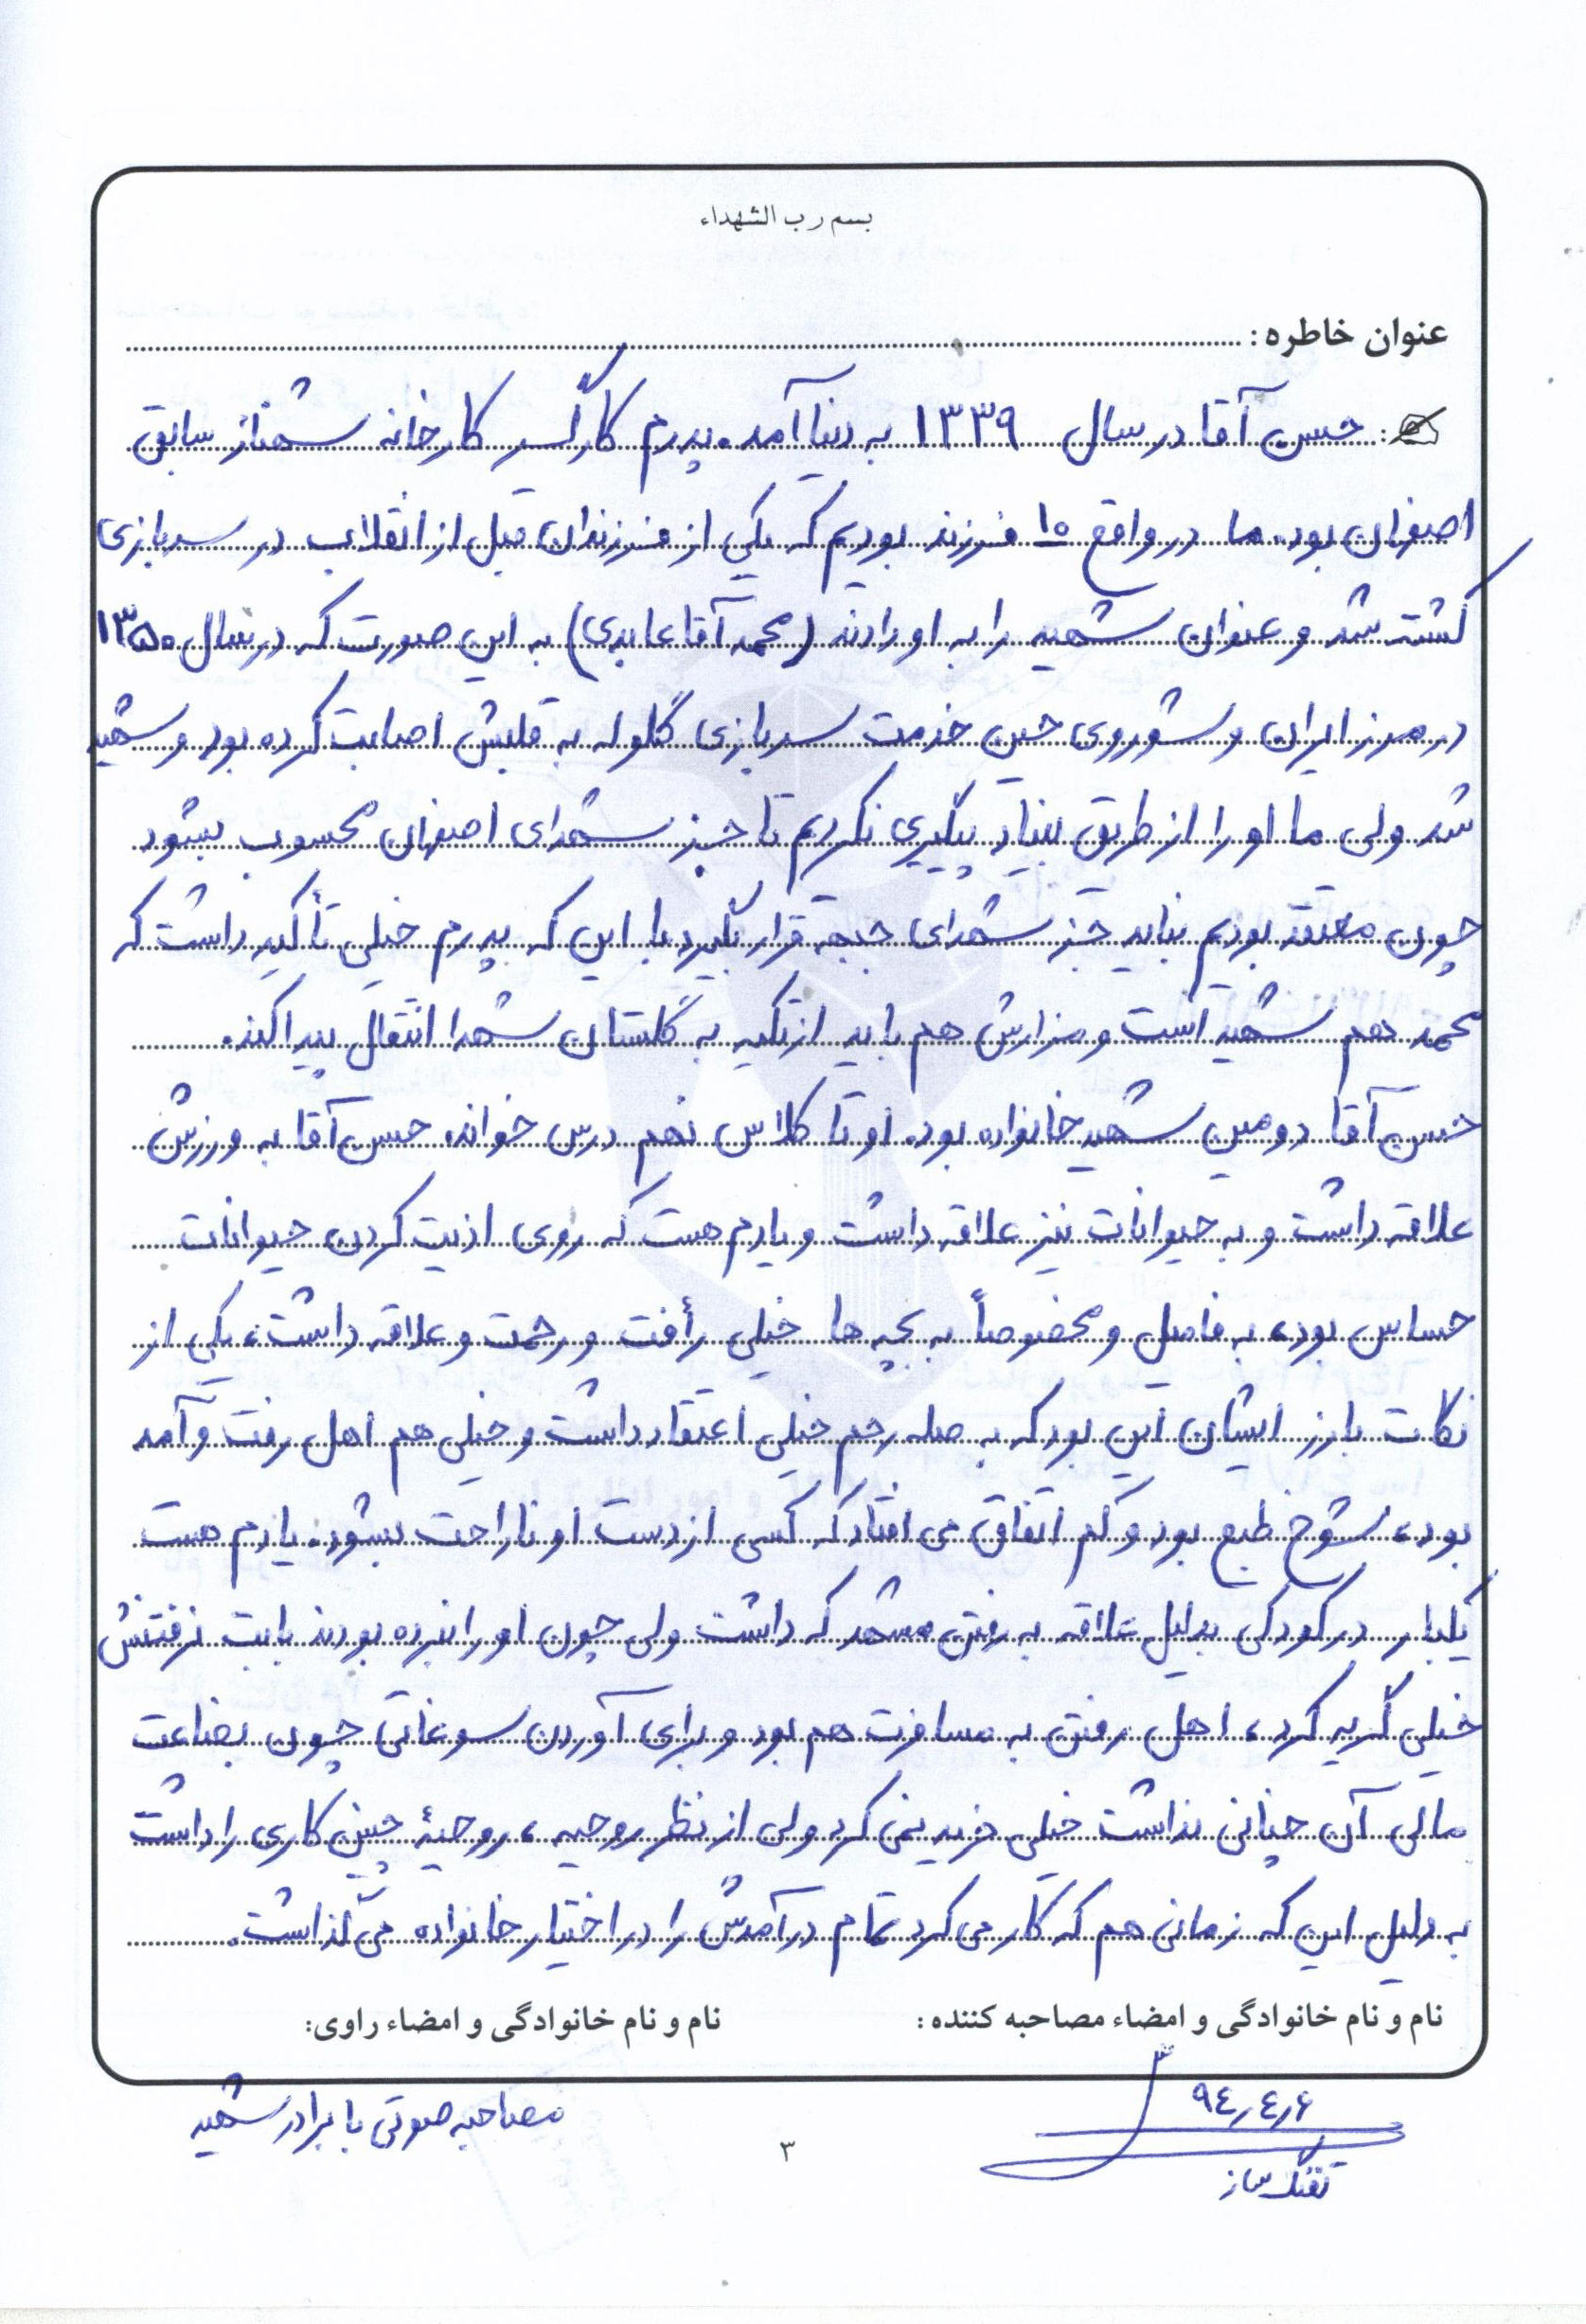 بسم رب الشهداء
عنوان خاطره:
حسن آقا در سال ۱۳۳۹ به دنیا آمد. پدرم کارگر کارخانه شهناز سابق
اصفهان بود. ما در واقع ۱۰ فرزند بودیم که یکی از فرزندان قبل از انقلاب در سربازی
کشته شد و عنوان شهید را به او دادند (محمد آقا عابدی) به این صورت که در سال ۱۳۵۰
در مرز ایران و شوروی حین خدمت سربازی گلوله به قلبش اصابت کرده بود و شهید
شد ولی ما او را از طریق بنیاد پیگیری نکردیم تا جزء شهدای اصفهان محسوب بشود
چون معتقد بودیم نباید جزء شهدای جبهه قرار بگیرد با این که پدرم خیلی تأکید داشت که
محمد هم شهید است و مزارش هم باید از تکیه به گلستان شهدا انتقال پیدا کند.
حسن آقا دومین شهید خانواده بود. او تا کلاس نهم درس خواند. حسن آقا به ورزش
علاقه داشت و به حیوانات نیز علاقه داشت و یادم هست که روی اذیت کردن حیوانات
حساس بود، به فامیل و مخصوصاً به بچه ها خیلی رأفت و رحمت و علاقه داشت، یکی از
نکات بارز ایشان این بود که به صله رحم خیلی اعتقاد داشت و خیلی هم اهل رفت و آمد
بود، شوخ طبع بود و کم اتفاق می افتاد که کسی از دست او ناراحت بشود. یادم هست
یکبار در کودکی بدلیل علاقه به رفتن مشهد که داشت ولی چون او را نبرده بودند بابت نرفتنش
خیلی گریه کرد، اهل رفتن به مسافرت هم بود و برای آوردن سوغاتی چون بضاعت
مالی آن چنانی نداشت خیلی خرید نمی کرد ولی از نظر روحیه، روحیۀ چنین کاری را داشت
به دلیل این که زمانی هم که کار می کرد تمام درآمدش را در اختیار خانواده می گذاشت.
نام و نام خانوادگی و امضاء مصاحبه کننده: نام و نام خانوادگی و امضاء راوی:
۹٤٫٤٫۶ مصاحبه صوتی با برادر شهید
تفنگ ساز
۳